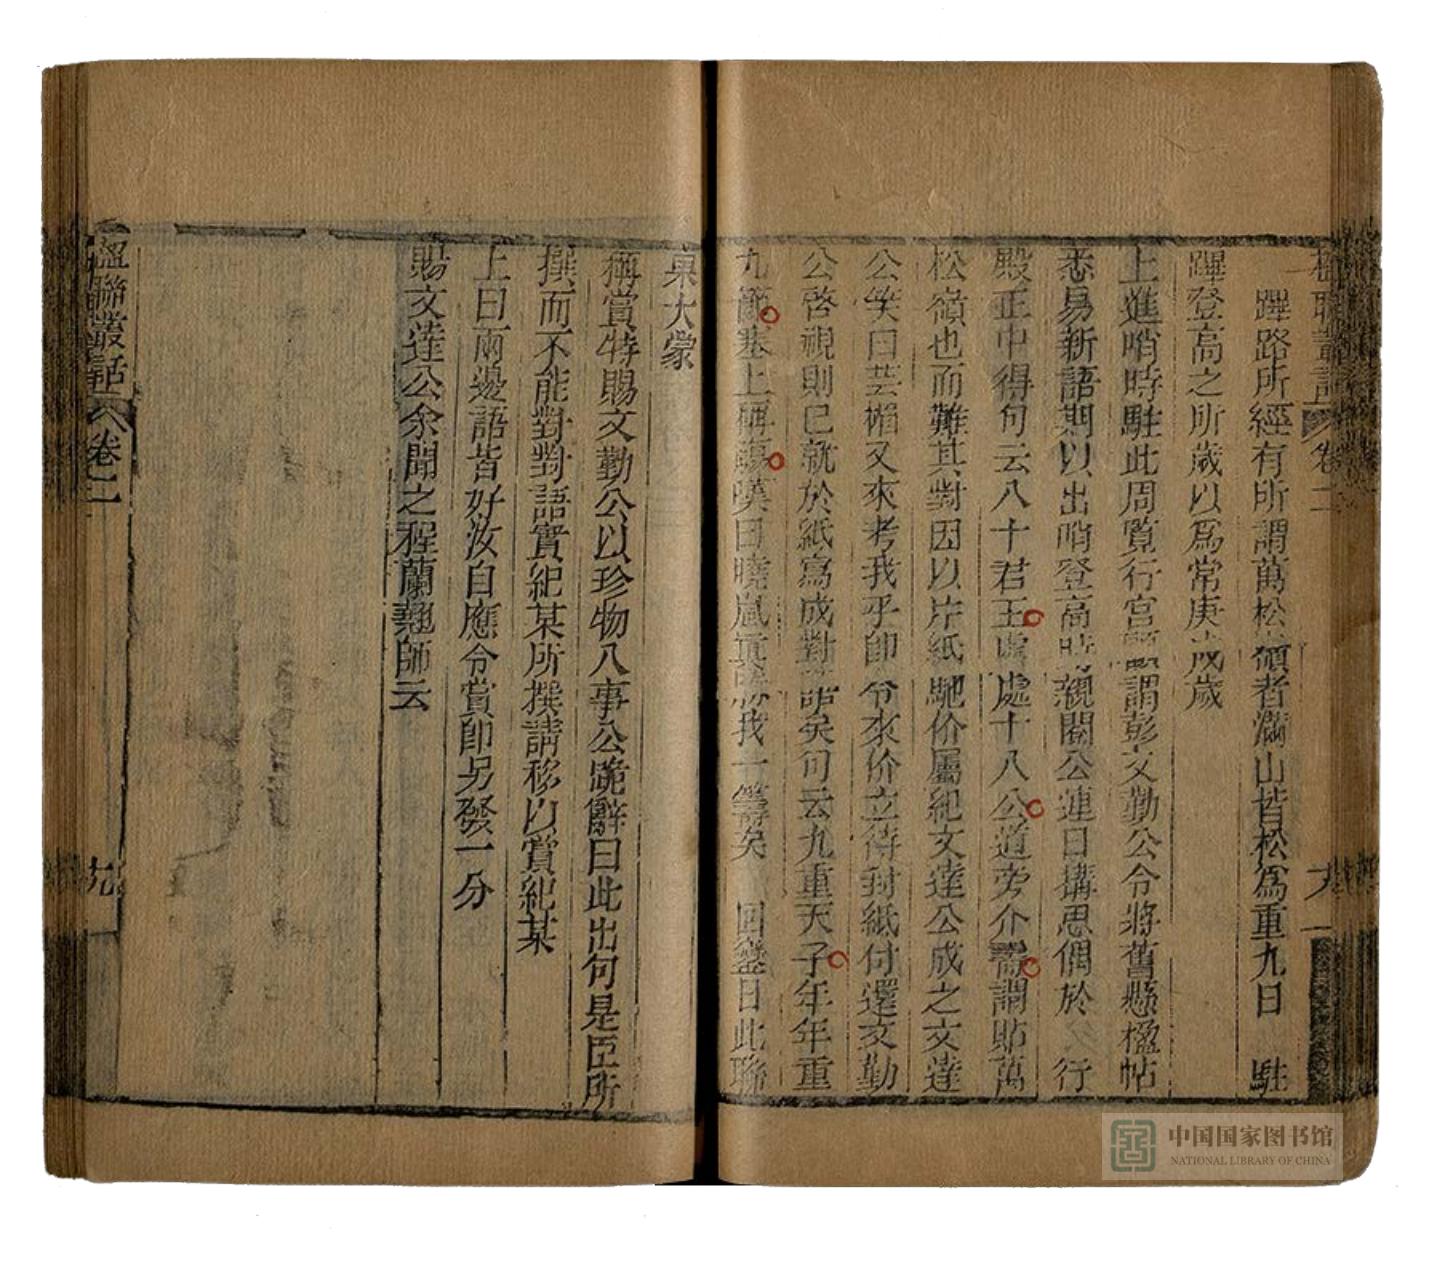 楹聯叢話 卷二
蹕路所經有所謂萬松嶺者滿山皆松爲重九日 駐
蹕登高之所歲以爲常庚戌歲
上進哨時駐此周覽行宮謂彭文勤公令將舊懸楹帖
悉易新語期以出哨登高時親閱公連日搆思偶於 行
殿正中得句云八十君王處處十八公道旁介壽謂貼萬
松嶺也而難其對因以片紙馳价屬紀文達公成之文達
公笑曰芸楣又來考我乎即令來价立待封紙付還文勤
公啓視則已就於紙寫成對語矣句云九重天子年年重
九節塞上稱觴嘆曰曉嵐真勝我一籌矣 回鑾日此聯
果大蒙
稱賞特賜文勤公以珍物八事公跪辭曰此出句是臣所
撰而不能對對語實紀某所撰請移以賞紀某
上曰兩邊語皆好汝自應令賞即另發一分
賜文達公余聞之程蘭翹師云
楹聯叢話 卷二
九
中国国家图书馆
NATIONAL LIBRARY OF CHINA